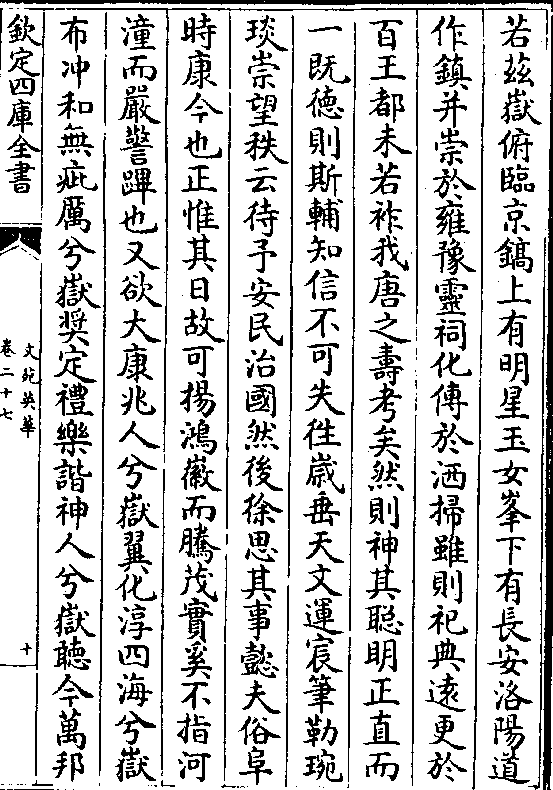 若兹嶽俯臨京鎬上有明星玉女峯下有長安洛陽道
作鎮并崇於雍豫靈祠化傳於洒掃雖則祀典遠更於
百王都未若祚我唐之壽考矣然則神其聰明正直而
一既徳則斯輔知信不可失徃嵗垂天文運宸筆勒琬
琰崇望秩云待予安民治國然後徐思其事懿夫俗阜
時康今也正惟其日故可揚鴻徽而騰茂實奚不指河
潼而嚴警蹕也又欲大康兆人兮嶽翼化淳四海兮嶽
布冲和無疵厲兮嶽奨定禮樂諧神人兮嶽聽今萬邦
欽定四庫全書
文苑英華
卷二十七
十